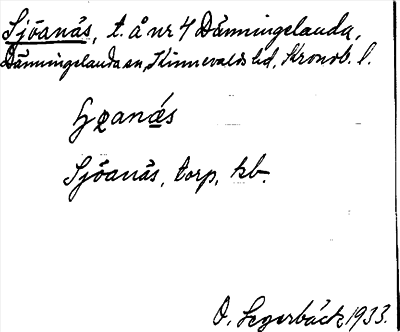 Sjöanäs, t. å nr 4 Dänningelanda,
Dänningelanda sn, Kinnevalds hd, Kronob. l.
Sjöanäs, torp, kb.
O. Segerbäck 1933.